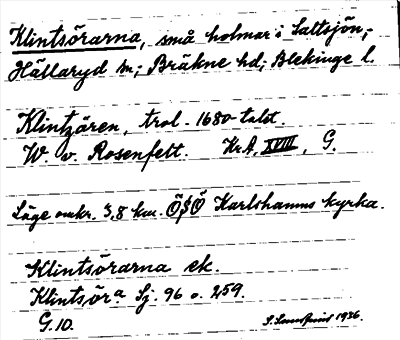 Klintsörarna, små holmar i Saltsjön;
Hällaryd sn; Bräkne hd; Blekinge l.
Klintzören, trol. 1680-talet.
W. v. Rosenfelt. Kr.A. XVIII, G.
Läge omkr. 3,8 km. ÖSÖ Karlshamns kyrka.
Klintsörarna ek.
Klintsöra Sj. 96 o. 259.
G.10.
1936.